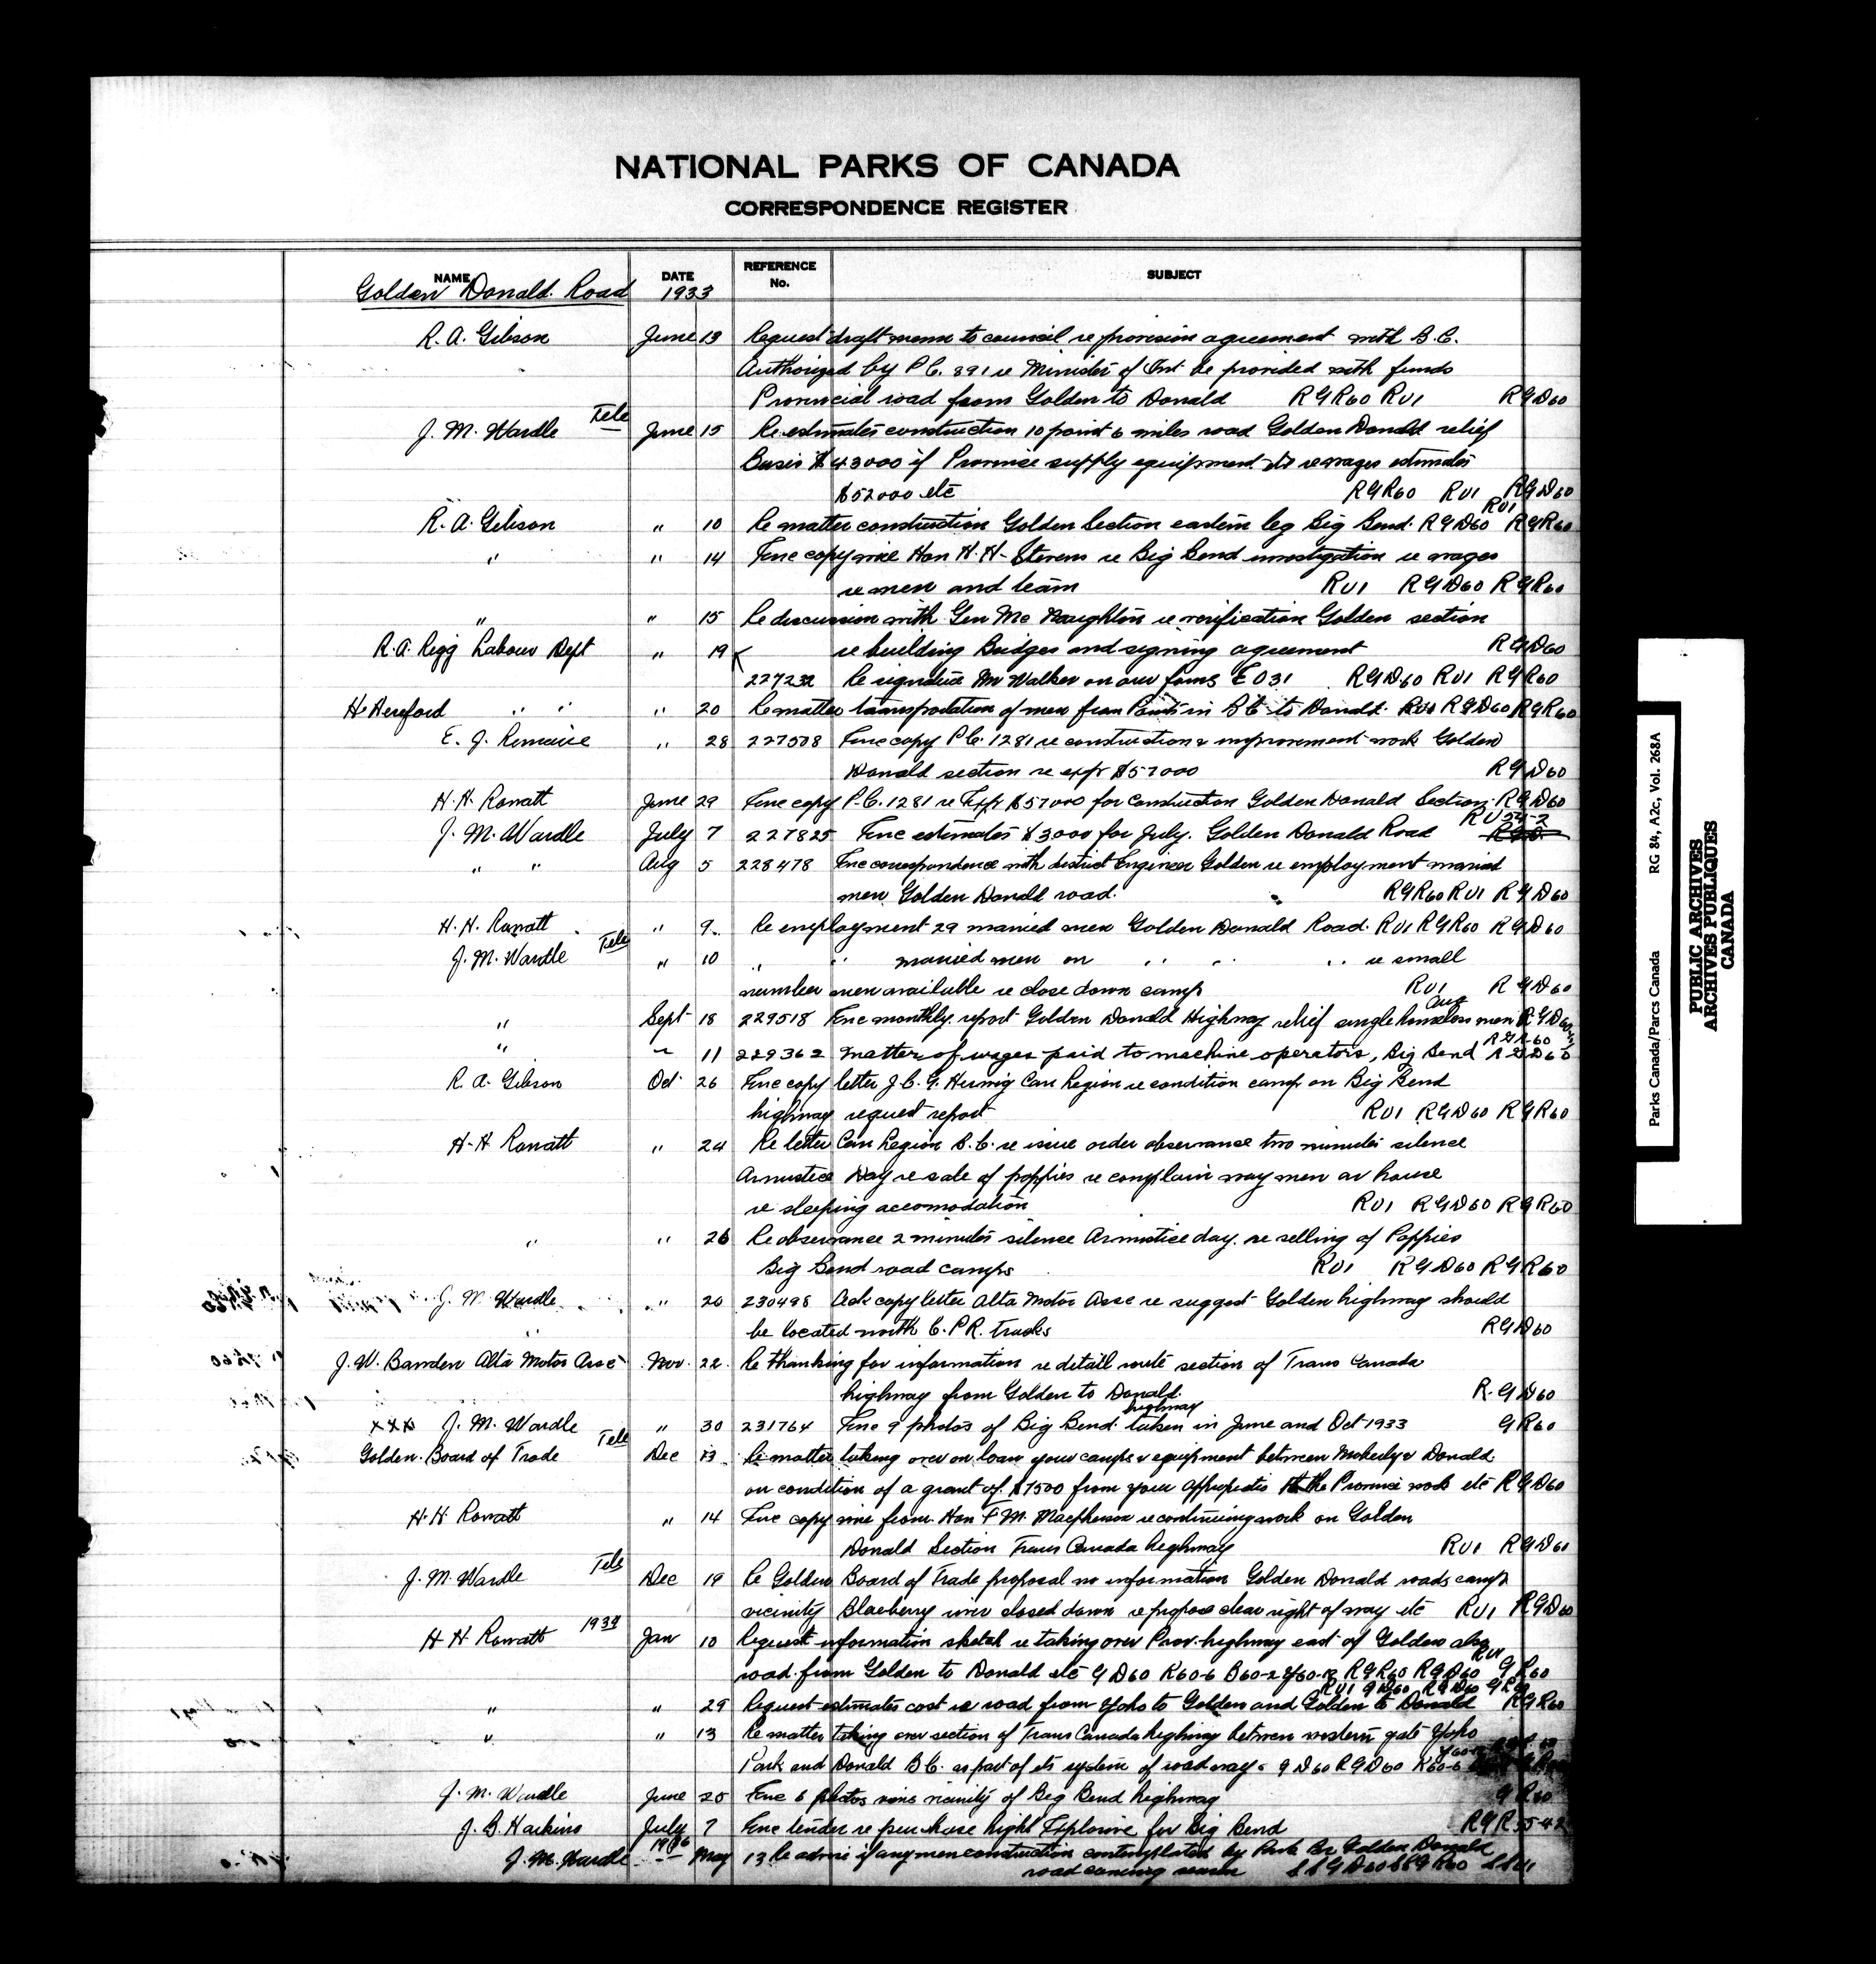 NATIONAL PARKS OF CANADA
CORRESPONDENCE REGISTER
NAME DATE REFERENCE No. SUBJECT
Golden Donald Road 1933
R. A. Gibson June 13 Request draft memo to council re provision agreement with B.C.
Authorized by P.C. 891 re Minister of Int be provided with funds
Provincial road from Golden to Donald RGR60 RU1 RGD60
J. M. Wardle Tele June 15 Re estimates construction 10 point 6 miles road Golden Donald relief
Basis $43000 if Province supply equipment etc re wages estimates
$52000 etc RGR60 RU1 RGD60
R. A. Gibson " 10 Re matter construction Golden Section eastern leg Big Bend. RGD60 RU1 RGR60
" " 14 Enc copy wire Hon H. H. Stevens re Big Bend investigation re wages
re men and team RU1 RGD60 RGR60
" " 15 Re discussion with Gen McNaughton re verification Golden section
R. A. Rigg Labour Dept " 19 re building Bridges and signing agreement RGD60
227232 Re signature Mr Walker on our forms E 031 RGD60 RU1 RGR60
H Hereford " " " 20 Re matter transportation of men from Points in B.C. to Donald. RU1 RGD60 RGR60
E. J. " 28 227508 Enc copy P.C. 1281 re construction & improvement work Golden
Donald section re expr $57000 RGD60
H. H. Rowatt June 29 Enc copy P.C. 1281 re Expr $57000 for construction Golden Donald Section. RGD60
J. M. Wardle July 7 227825 Enc estimates $3000 for July. Golden Donald Road RU54-2
" " Aug 5 228478 Enc correspondence with district Engineer Golden re employment married
men Golden Donald road. RGR60 RU1 RGD60
H. H. Rowatt " 9 Re employment 29 married men Golden Donald Road. RU1 RGR60 RGD60
J. M. Wardle Tele " 10 " " married men on " " " re small
number men available re close down camp RU1 RGD60
" Sept 18 229518 Enc monthly report Golden Donald Highway relief single homeless men Aug RGD60
" " 11 229362 matter of wages paid to machine operators, Big Bend RGR60 RGD60
R. A. Gibson Oct 26 Enc copy letter J. C. G. Herwig Can Legion re condition camp on Big Bend
highway request report RU1 RGD60 RGR60
H. H. Rowatt " 24 Re letter Can Legion B.C. re issue order observance two minutes silence
Armistice Day re sale of poppies re complain way men are house
re sleeping accomodation RU1 RGD60 RGR60
" " 26 Re observance 2 minutes silence Armistice day. re selling of Poppies
Big Bend road camps RU1 RGD60 RGR60
J. M. Wardle " 20 230498 Ack copy letter Alta Motor Assc re suggest Golden highway should
" be located north C.P.R. tracks RGD60
J. W. Alta Motor Assc Nov. 22 Re thanking for information re detail route section of Trans Canada
highway from Golden to Donald. R.GD60
xxx J. M. Wardle " 30 231764 Enc 9 photos of Big Bend highway taken in June and Oct 1933 GR60
Golden Board of Trade Tele Dec 13 Re matter taking over on loan your camps & equipment between Moberly & Donald
on condition of a grant of $7500 from your to the Province work etc RGD60
H. H. Rowatt " 14 Enc copy wire from Hon F. M. Macpherson re continuing work on Golden
Donald Section Trans Canada highway RU1 RGD60
J. M. Wardle Tele Dec 19 Re Golden Board of Trade proposal no information Golden Donald roads camp
vicinity Blaeberry river closed down re propose clear right of way etc RU1 RGD60
H H Rowatt 1934 Jan 10 Request information sketch re taking over Prov. highway east of Golden also
road from Golden to Donald etc GD60 K60-6 B60-2 Y60-12 RGR60 RGD60 RU1 GR60
" " 29 Request estimates cost re road from Yoho to Golden and Golden to Donald RU1 GD60 RGD60 GR60 RGR60
" " 13 Re matter taking over section of Trans Canada highway between western gate Yoho
Park and Donald B.C. as part of its system of roadways. GD60 RGD60 K60-6
J. M. Wardle June 20 Enc 6 photos views vicinity of Big Bend highway GR60
J. B. Harkins July 7 Enc tender re purchase hight Explosive for Big Bend RGR
J. M. Wardle 1936 May 13 Re advise if any men construction contemplated by Park Br Golden Donald
road coming season
Parks Canada/Parcs Canada RG 84, A2c, Vol. 268A
PUBLIC ARCHIVES
ARCHIVES PUBLIQUES
CANADA